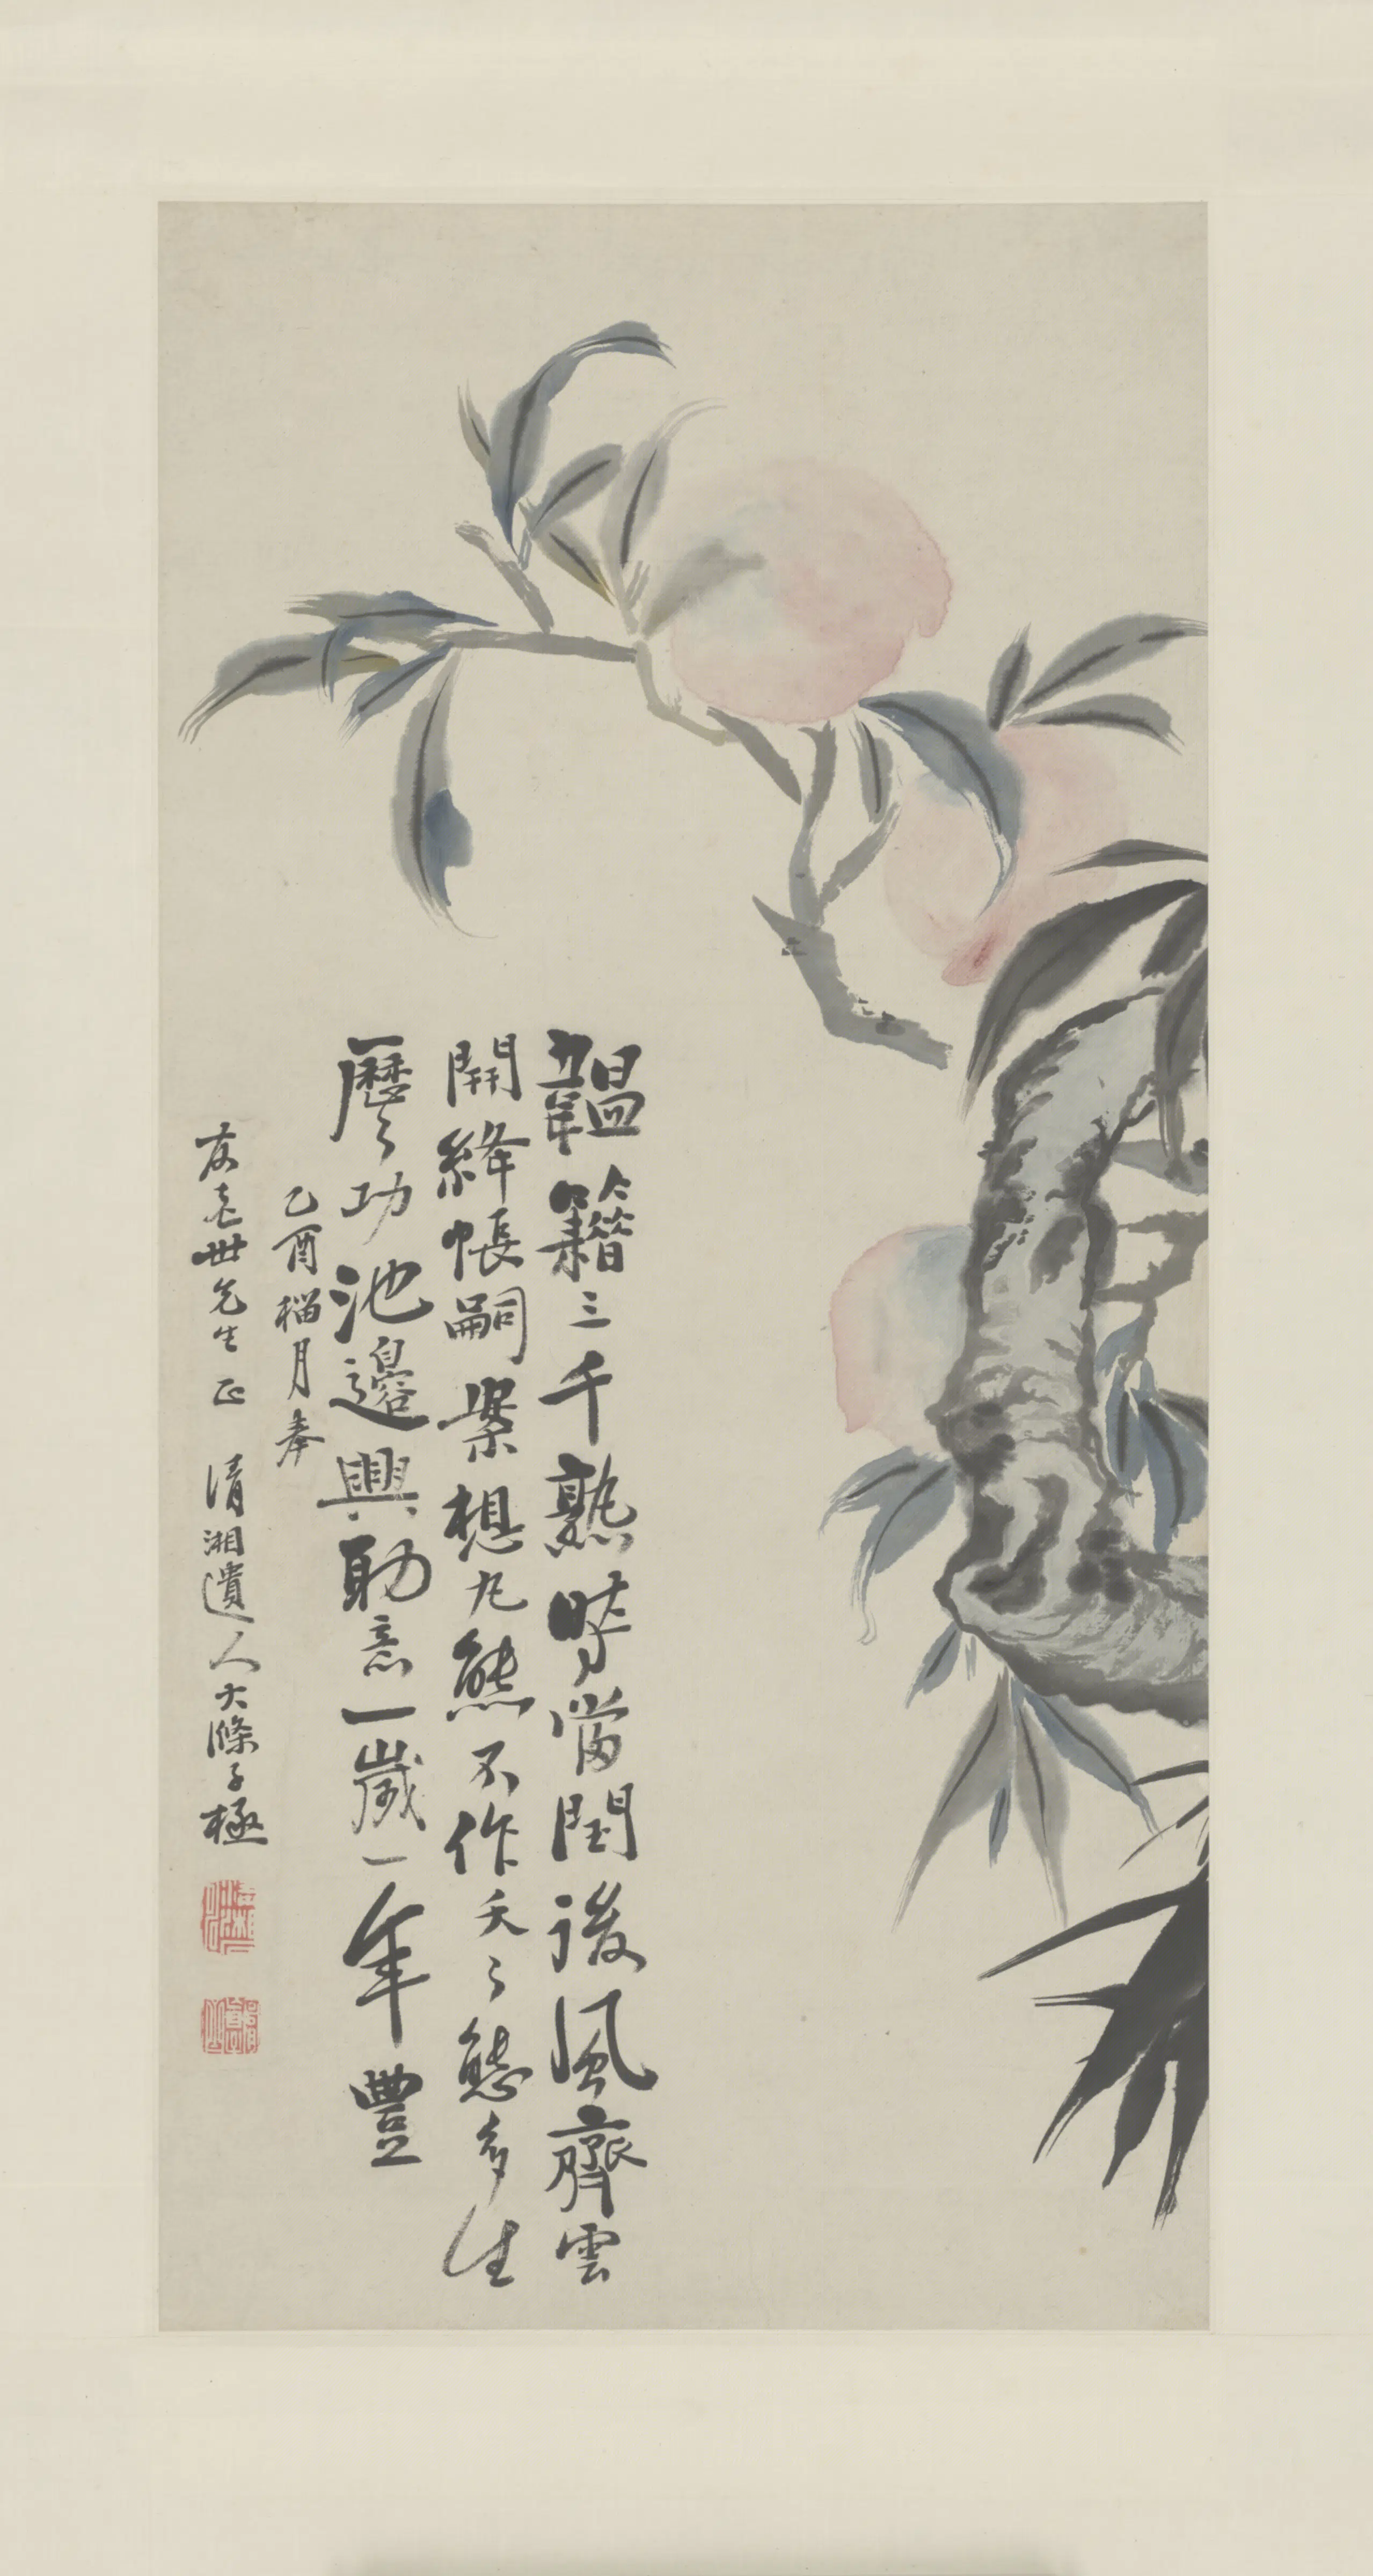 韞籍三千熟時當閏後風齊雲
開絳帳嗣業想丸熊不作夭〻態多生
歷〻功池邊興勛意一歲一年豐
乙酉榴月奉
友老世先生正 清湘遺人大滌子極